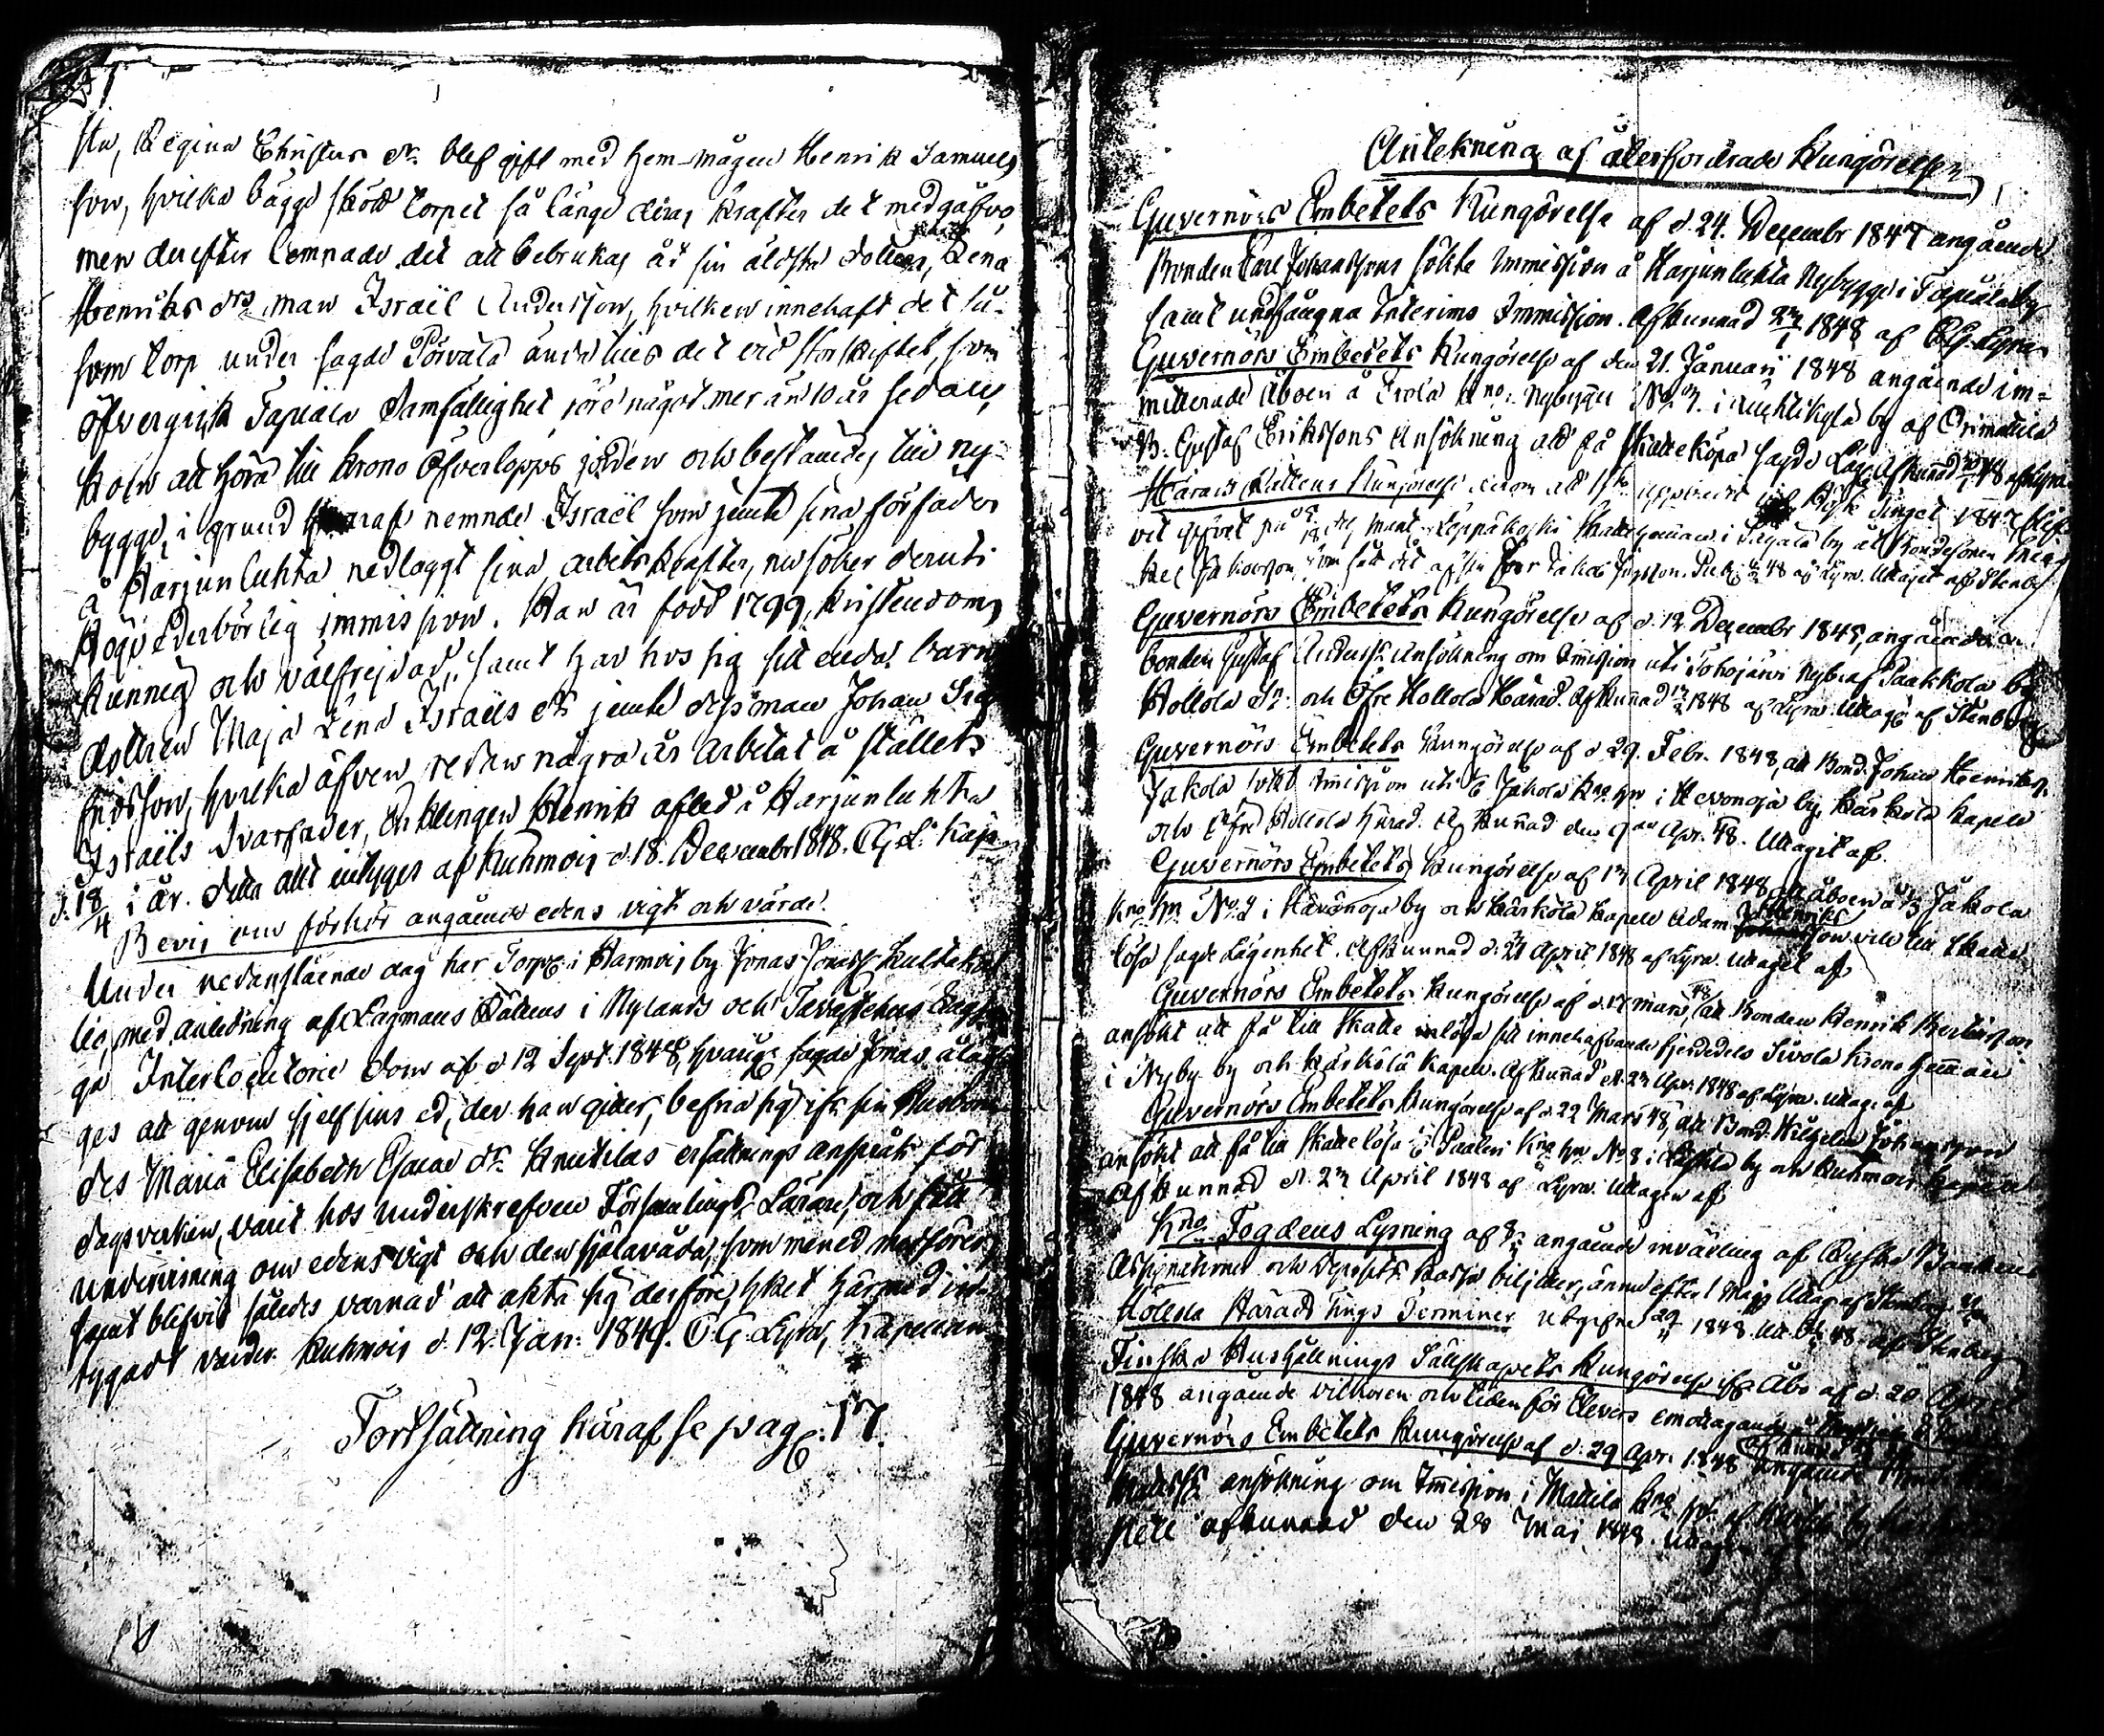 sta, Regina Christers dr. blef gift med hem-mågen Henrik Samuels
son, hvilka bägge skött torpet så länge deras krafter det medgåfvo,
men derefter lemnade det att bebrukas åt sin äldsta dotters, Lena
Henriks drs man Israël Andersson, hvilken innehaft det så-
som torp under sagde Pörvälä ända tills det vid storskiftet, som
öfvergick Tapiala Samfällighet före något mer än 10 år sedan,
kom att höra till Krono Öfverlopps jorden och bestämdes till ny-
bygge, i grund hvaraf nemnde Israël som jemte sina förfäder
å Harjunluhta nedlaggt sina arbetskrafter, nu söker deruti
Högvederbörlig immission. Han är född 1799, kristendoms
kunnig och välfrejdad, samt har hos sig sitt enda barn
dottren Maja Lena Israëls dr. jemte dess man Johan Sig-
fridsson, hvilka äfven redan några år arbetat å stället.
Israëls Svärfader, Enklingen Henrik afled å Harjunluhta
d. 18/4 i år. Detta allt intygas af Kuhmois d. 18. December 1848. C. G. L. Kapn
Bevis om förhör angående edens vigt och värde.
Under nedanstående dag har Torp. i Harmois by Jonas Jonass.
lio, med anledning af Lagmans Rättens i Nylands och Tavastehus Lagsa
ga Interlocutorie dom af d 12 Sept. 1848, hvarige. sagde Jonas ålag-
ges att genom sjelf sins ed, der han gitter, befria sig ifr. sin Husbon-
des Maria Elisabeth Esaias dr. Knutilas ersättnings anspråk för
dagsverken, varit hos underskrefven Församlings Lärare, och fått
undervisning om edens vigt och den själavåda, som mened medförer,
samt blifvit således varnad att akta sig derföre, hket härmed in-
tygadt varder. Kuhmois d. 12. Jan. 1849. C. G. Lyra, Kapellan
Fortsättning häraf se pag. 17.
Antekning af återfordrade Kungörelser
Guvernörs Embetets Kungörelse af d. 24. Decembr 1847 angående
Bonden Carl Johanssons sökte Immission å Harjunluhta Nybygge i Tapiala by
samt undfångna Interims Immission. Afkunnad 1848 af C. G. Lyra
Guvernörs Embetets Kungörelse af den 21. Januari 1848 angående im-
mitterade Åboen å Erola kno. Nybygge No 7. i by af Orimattila
S. Gustaf Erikssons Ansökning att få skatteköpa sagde Läg. Afkunnad 48 af Lyra
Härads Rättens Kungörelse derom att uppbud vid Höst Tinget 1847 blif-
vit gifvet på mant. Leppäkoski Skattehemman i by åt Bondesonen Mic-
kel Jakobsson, som fått det af sin Far Jakob 48 af Lyra. Uttaget af Stenb
Guvernörs Embetets Kungörelse af d. 12 Decembr 1848, angående
bonden Gustaf Anderss. Ansökning om Immission uti Sohojärvi Nyb. af Paakkola by
Hollola Sn. och Öfre Hollola Härad. Afkunnad 1848 af Lyra. Uttag. af Stenberg
Guvernörs Embetets Kungörelse af d 29. Febr. 1848, att Bond. Johan Henriks.
Jakola sökt Immission uti Jakola Kno. hn i Hevonoja by, Kärkola Kapell
och Öfre Hollola härad. Afkunnad den 9 Apr. 48. Uttagit af
Guvernörs Embetets Kungörelse af 17 April 1848 att åboen å Jakola
Kno hn. No. 4 i Hävonoja by och Kärkölä Kapell Adam Henriksson vill till skatte
lösa sagde Lägenhet. Afkunnad d. 27 April 1848 af Lyra. uttaget af
Guvernörs Embetets Kungörelse af d. 17 mars 48, att Bonden Henrik
ansökt att få till skatte inlösa sitt innehafvande fjerdedels Sivola Krono hemman
i Nyby by och Kärkölä Kapell. Afkunnad d. 27 Apr. 1848 af Lyra. uttag. af
Guvernörs Embetets Kungörelse af d. 22 Mars 48, att Bond. Wilhelm Johansson
ansökt att få till skatte lösa Kno hn No 8 i by och Kuhmois kapell
Afkunnad d. 27 April 1848 af Lyra. Uttagen af
Kno. Fogdens Lysning af angående invexling af Ryska Bankens
Assignationer och Deposits Kassa biljetter, ännu efter 1 Maji Uttag. af Stenberg
Hollola Härads Tings Terminer utgifne 1848. Utt. 48. af Stenberg
Finska Hushållnings Sällskapets Kungörelse ifr. Åbo af d. 20 April
1848 angående vilkoren och tiden för Elevers emottagande
Guvernörs Embetets Kungörelse af d. 29 Apr. 1848 angående
ansökning om Immission i Mattila Kno
afkunnad den 28 Maj 1848. Uttagen